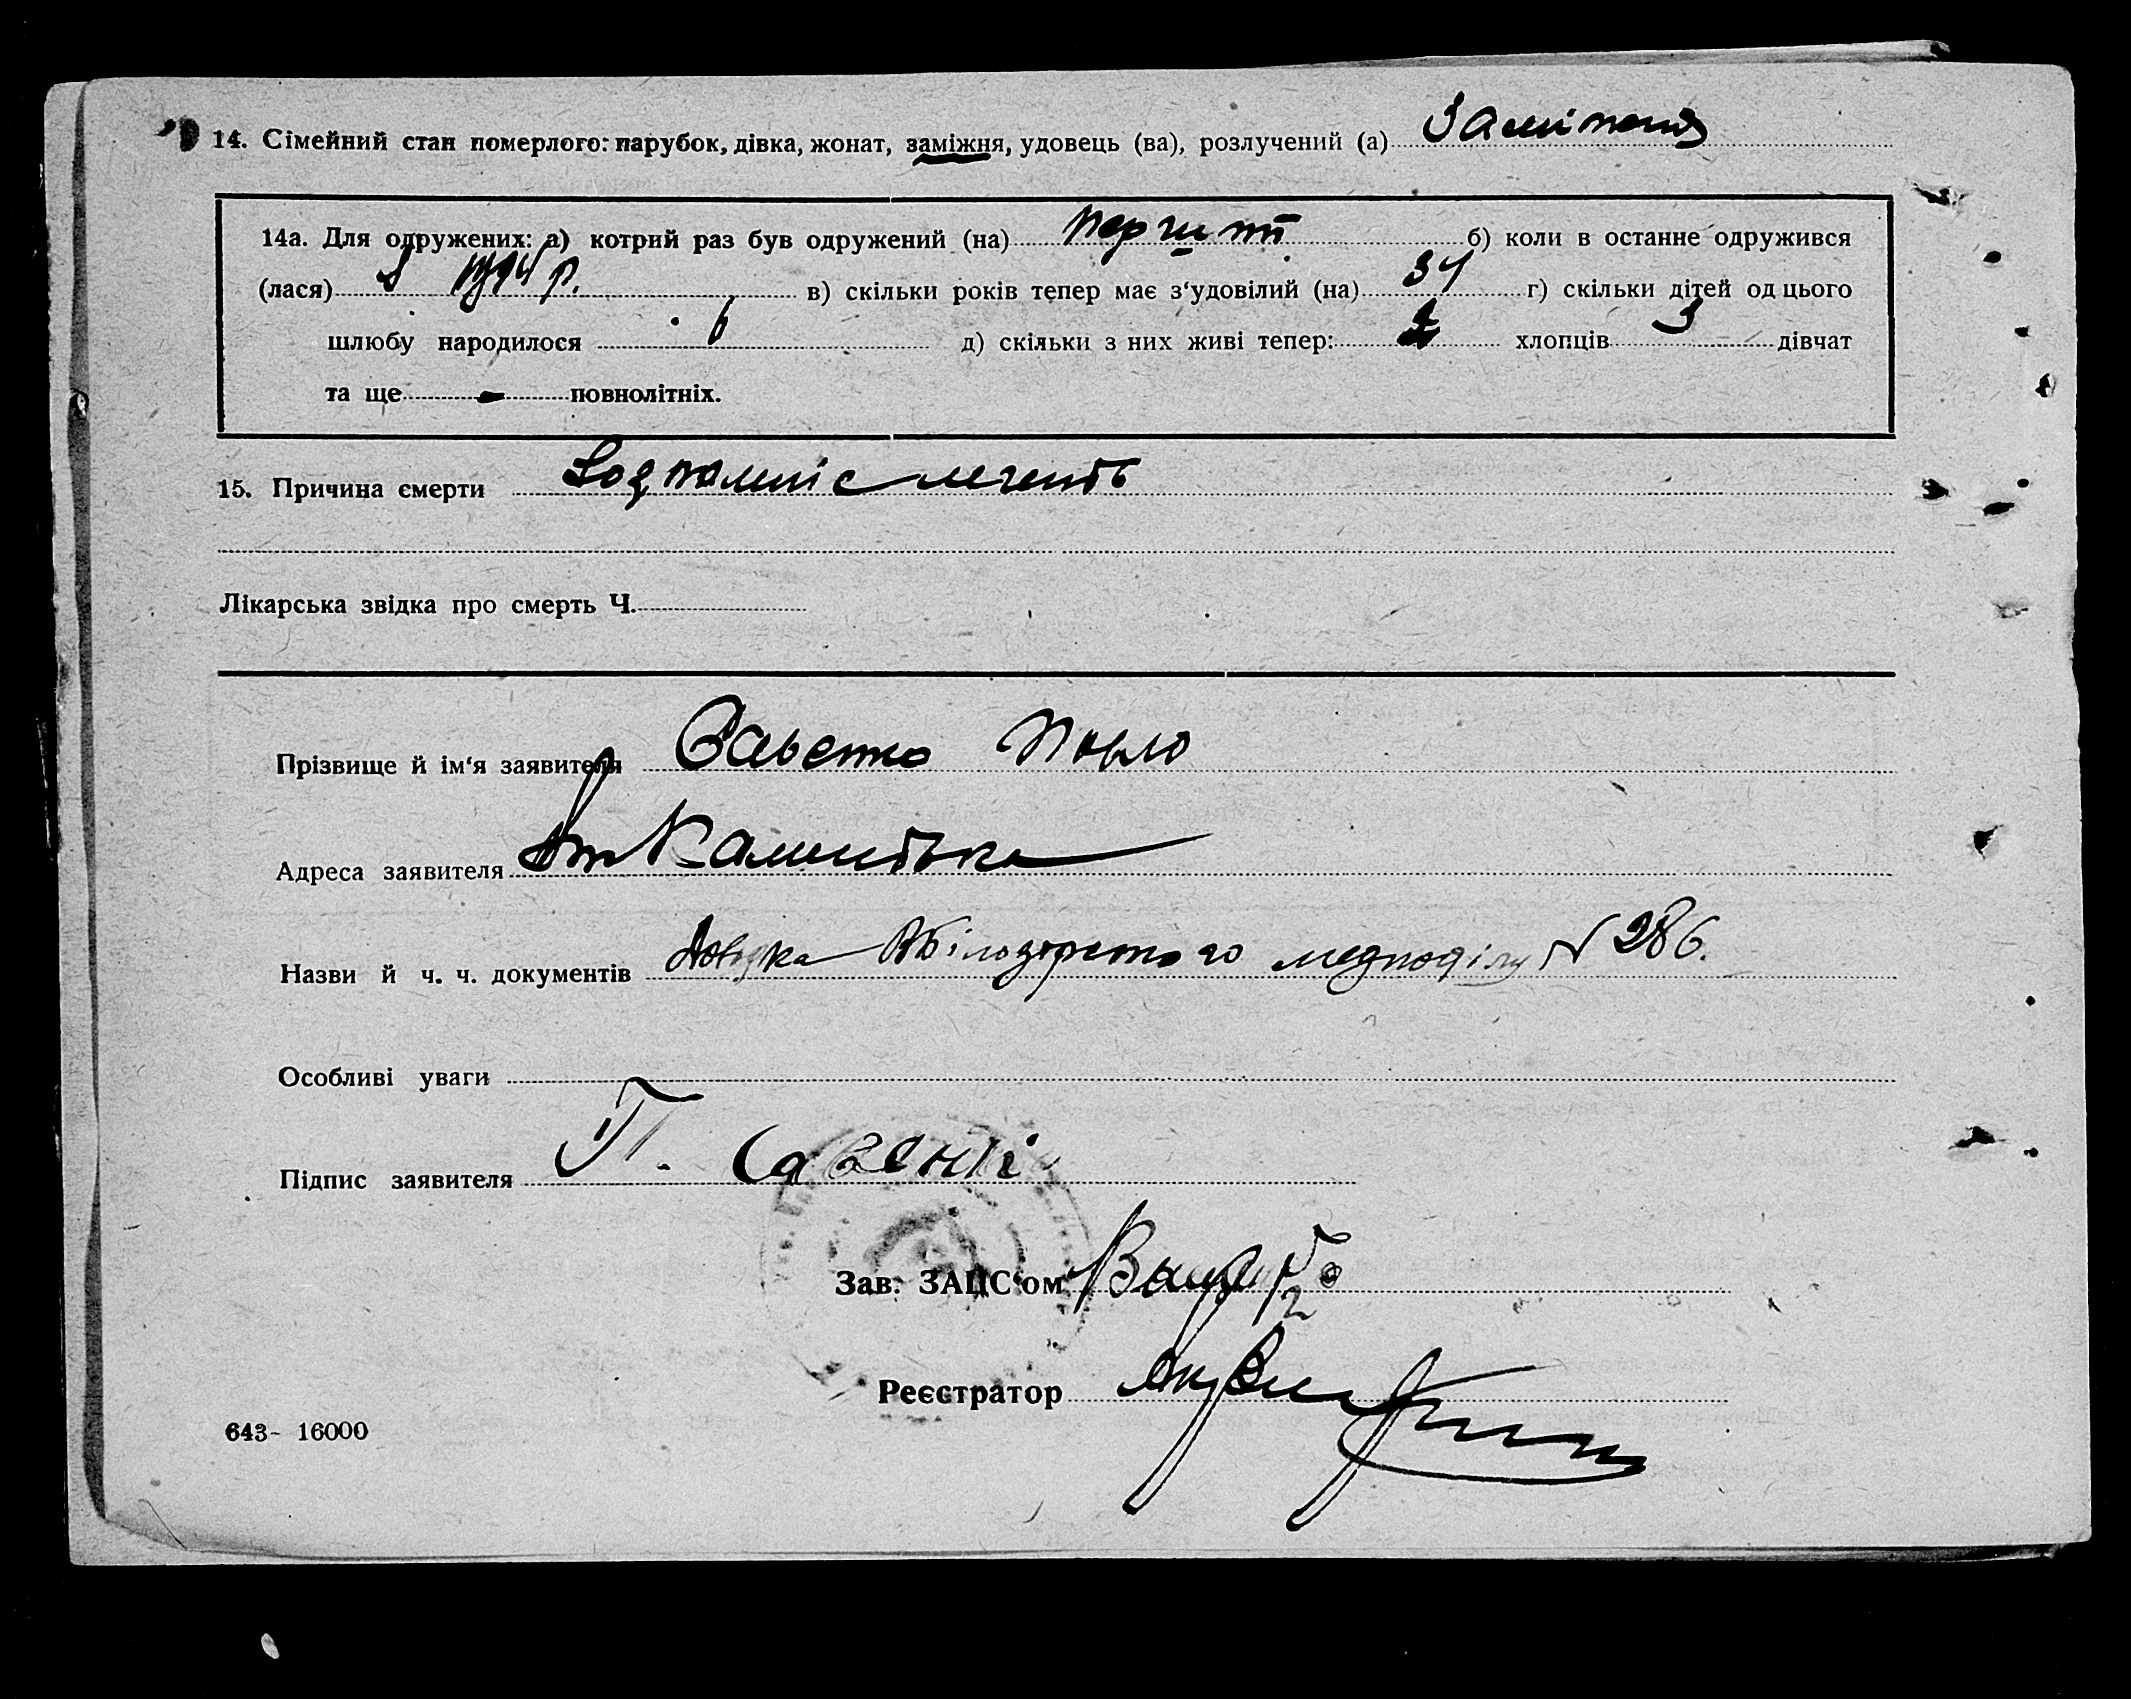 14. Сімейний стан померлого: парубок, дівка, жонат, заміжня, удовець (ва), розлучений (а) Заміжня
14а. Для одружених: а) котрий раз був одружений (на) перший б) коли в останнє одружився
(лася) в) скільки років тепер має з'удовілий (на) 34 г) скільки дітей од цього
шлюбу народилося 6 д) скільки з них живі тепер: хлопців 3 дівчат
та ще - повнолітніх.
15. Причина смерти легенів
Лікарська звідка про смерть Ч.
Прізвище й ім'я заявителя Савенко Павло
Адреса заявителя Каменська
Назви й ч. ч. документів Довідка Білозерського N 286.
Особливі уваги
Підпис заявителя П. Савенко
Зав. ЗАЦС'ом
Реєстратор
643- 16000